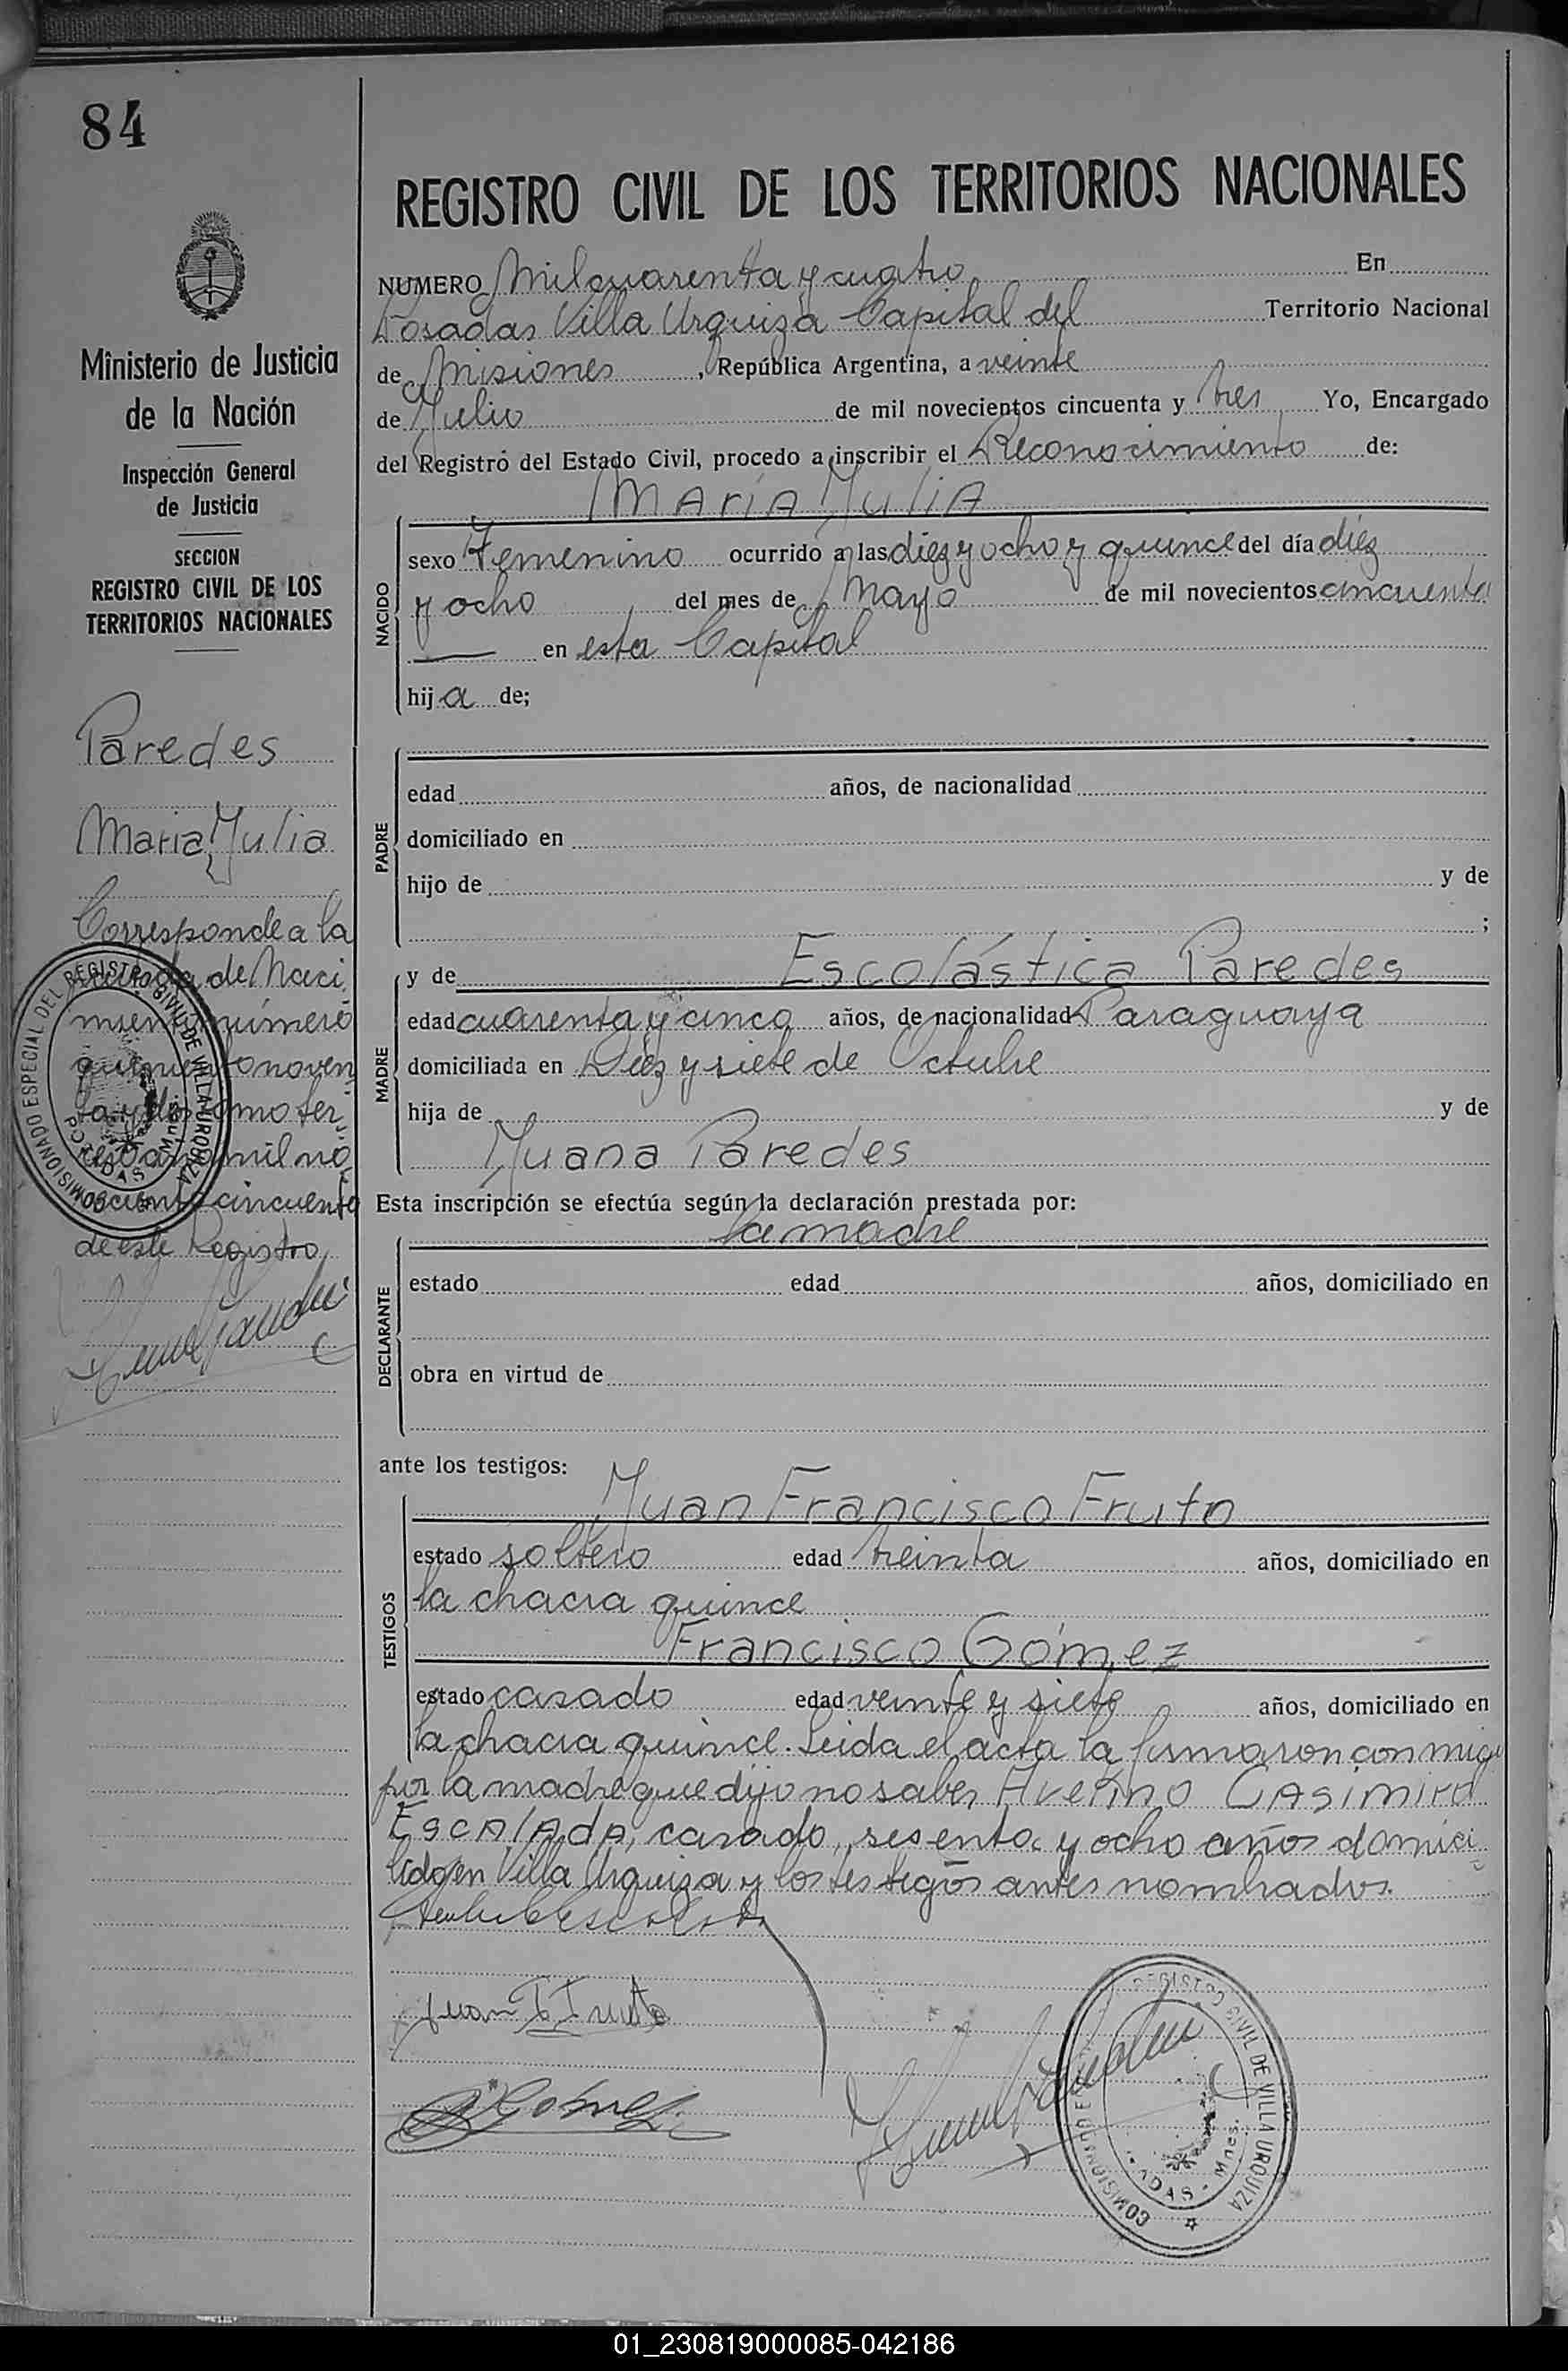 84
Ministerio de Justicia
de la Nación
Inspección General
de Justicia
SECCION
REGISTRO CIVIL DE LOS
TERRITORIOS NACIONALES
Paredes
Maria Julia
Corresponde a la
de Naci
miento número
quiniento noven
ta y dos tomo ter
cero año mil no
vecientos cincuenta
de este Registro
COMISIONADO ESPECIAL DEL REGISTRO CIVIL DE VILLA URQUIZA
POSADAS - Mnes.
REGISTRO CIVIL DE LOS TERRITORIOS NACIONALES
NUMERO Mil cuarenta y cuatro En
Posadas Villa Urquiza Capital del Territorio Nacional
de Misiones, República Argentina, a veinte
de Julio de mil novecientos cincuenta y tres Yo, Encargado
del Registro del Estado Civil, procedo a inscribir el Reconocimiento de:
MARÍA JULIA
NACIDO
sexo Femenino ocurrido a las diez y ocho y quince del día diez
y ocho del mes de Mayo de mil novecientos cincuenta
— en esta Capital
hija de;
PADRE
edad años, de nacionalidad
domiciliado en
hijo de y de
;
MADRE
y de Escolástica Paredes
edad cuarenta y cinco años, de nacionalidad Paraguaya
domiciliada en Diez y siete de Octubre
hija de y de
Juana Paredes
Esta inscripción se efectúa según la declaración prestada por:
la madre
DECLARANTE
estado edad años, domiciliado en
obra en virtud de
ante los testigos:
TESTIGOS
Juan Francisco Fruto
estado soltero edad treinta años, domiciliado en
la chacra quince
Francisco Gómez
estado casado edad veinte y siete años, domiciliado en
la chacra quince. Leida el acta la firmaron conmigo
por la madre que dijo no saber Avelino CASIMIRO
EscAlAdA, casado, sesenta y ocho años domici
lido en Villa Urquiza y los testigos antes nombrados.
Juan F Fruto
F Gomez
REGISTRO CIVIL DE VILLA URQUIZA
COMISIONADO
ADAS - Mnes.
01_230819000085-042186